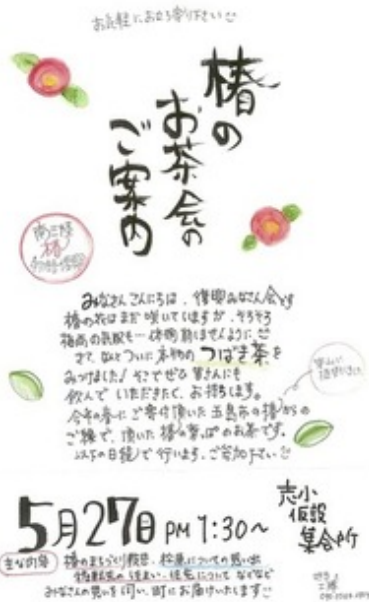 お気軽にお立ち寄り下さい
椿の
お茶会の
ご案内
南三陸
椿
みなさんこんにちは、復興みなさん会です
椿の花はまだ咲いていますが、そろそろ
梅雨の気配も…体調崩しませんように
さて、なんとついに本物のつばき茶を
みつけました！そこでぜひ皆さんにも
飲んでいただきたく、お待ちします。
今年の春にご寄付頂いた五島市の椿からの
ご縁で、頂いた椿の葉っぱのお茶です。
以下の日程で行います。ご参加下さい
5月27日 PM 1:30～
志小
仮設
集会所
主な内容
椿のまちづくり報告、松原についての思い出
などなど
みなさんの思いを伺い、町にお届けいたします